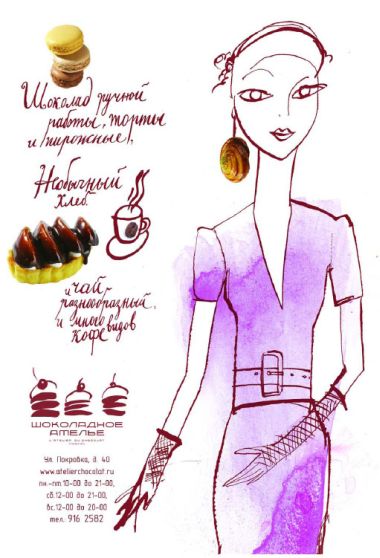 Шоколад ручной
работы, торты
и пирожные,
Необычный
хлеб
и чай
разнообразный,
и много видов
кофе
ШОКОЛАДНОЕ
АТЕЛЬЕ
Ул. Покровка, д. 40
www.atelierchocolat.ru
пн.-пт.10-00 до 21-00,
сб.12-00 до 21-00,
вс.12-00 до 20-00
тел. 916 2582